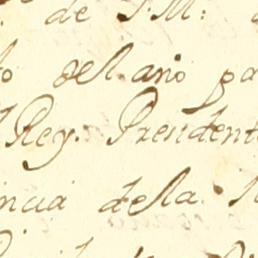 de S.M:
del año pa
Rey. President
ncia de la